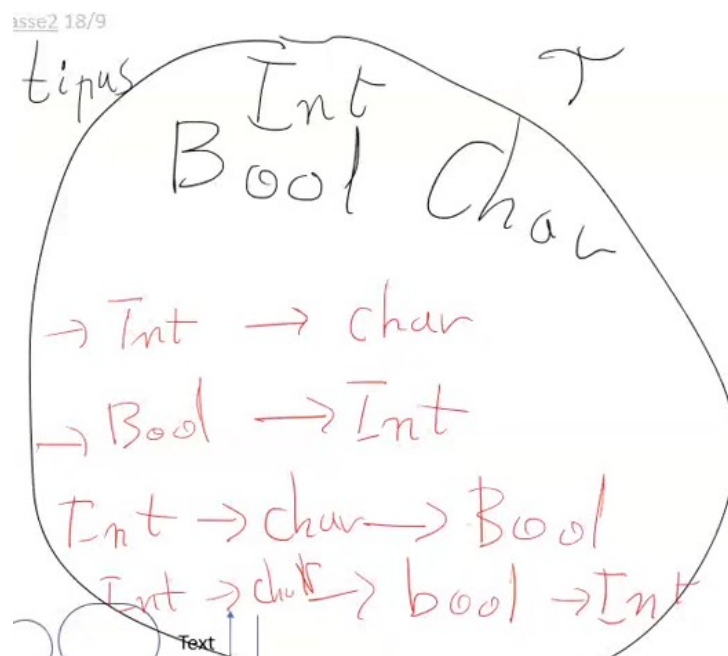 asse2 18/9
tipus
Int
τ
Bool Char
→ Int → char
→ Bool → Int
Int → char → Bool
Int → char → bool → Int
Text